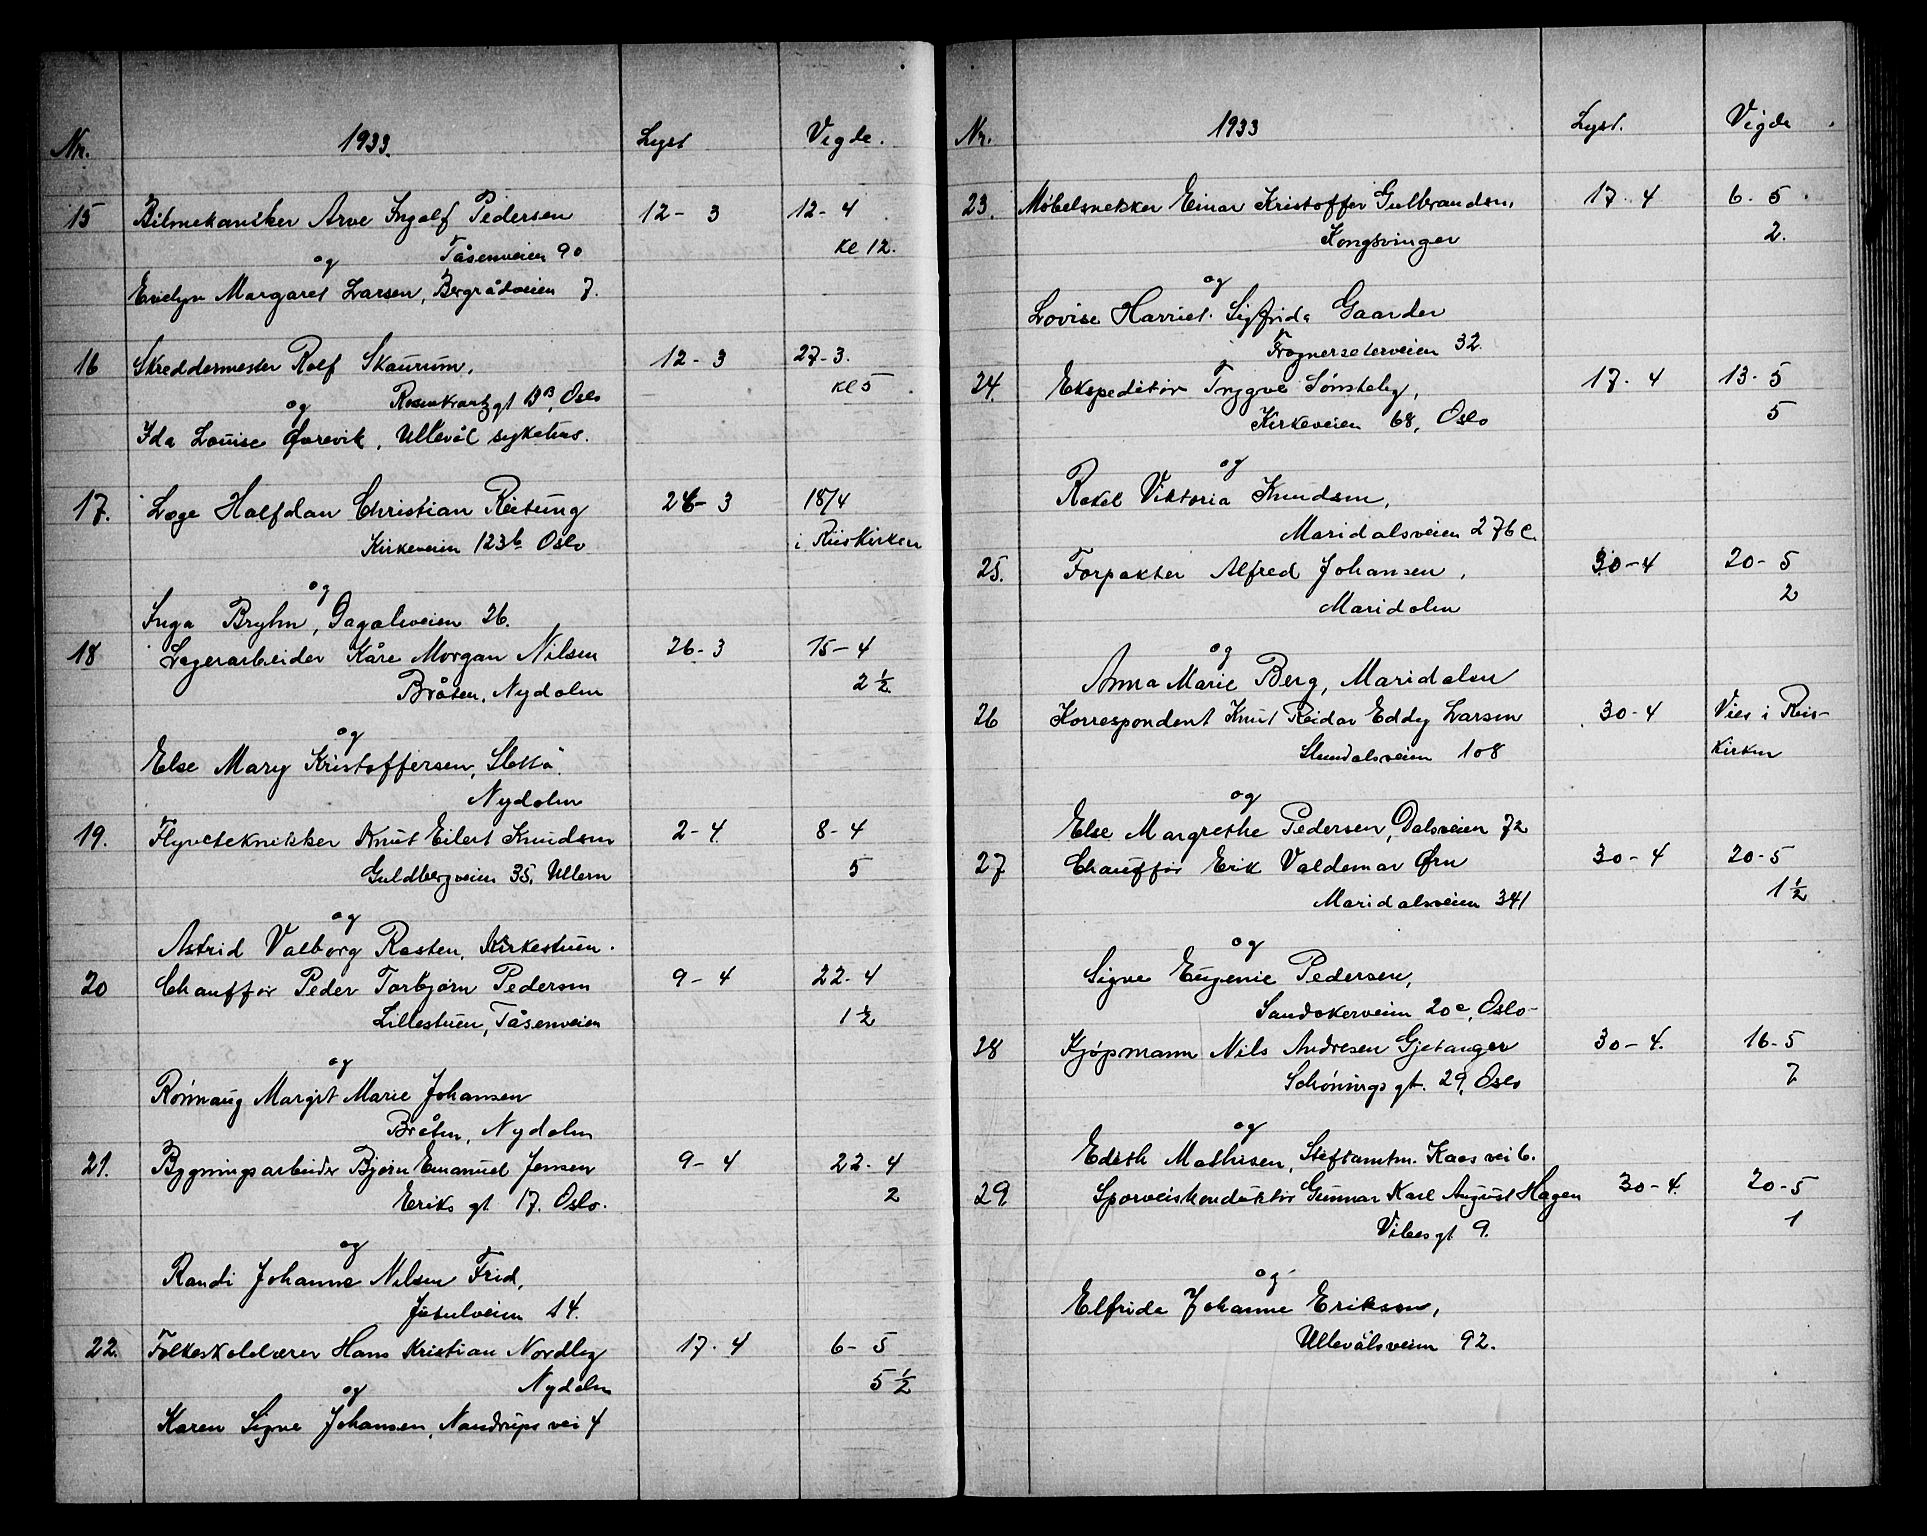 Nr. 1933. Lyst Vigde.
15 Bilmekaniker Arve Ingolf Pedersen 12-3 12-4
Tåsenveien 90 kl 12.
og
Evelyn Margaret Larsen, Bergrådveien 7.
16 Skreddermester Rolf Skaurum, 12-3 27-3.
Rosenkrantzgt, Oslo kl 5
og
Ida Louise Øvrevik, Ullevål sykehus.
17. Læge Halfdan Christian Reitung 26-3 18/4
Kirkeveien 123b Oslo i Riiskirken
og
Inga Bryhn, Dagaliveien 26.
18 Lagerarbeider Kåre Morgan Nilsen 26-3 15-4
Bråten, Nydalen 2 ½
og
Else Mary Kristoffersen, Sletta
Nydalen
19. Flyvetekniker Knut Eilert Knudsen 2-4 8-4
Guldbergveien 35, Ullern 5
og
Astrid Valborg Rosten, Kirkestuen.
20 Chauffør Peder Torbjørn Pedersen 9-4 22-4
Lillestuen, Tåsenveien 1 ½
og
Rønnaug Margit Marie Johansen
Bråten, Nydalen
21. Bygningsarbeider Bjørn Emanuel Jensen 9-4 22-4
Eriks gt 17. Oslo. 2
og
Randi Johanne Nilsen Frid,
Jutulveien 14.
22. Folkeskolelærer Hans Kristian Nordby 17-4 6-5
Nydalen 5 ½
og
Karen Signe Johansen, Nandrups vei 4
Nr. 1933 Lyst. Vigde
23. Møbelsnekker Einar Kristoffer Gulbrandsen, 17-4 6-5
Kongsvinger 2.
og
Lovise Harriet Sigfrida Gaarder
Frognerseterveien 32.
24. Ekspeditør Trygve Sønsteby, 17-4 13-5
Kirkeveien 68, Oslo 5
og
Rakel Viktoria Knudsen,
Maridalsveien 276c.
25. Forpakter Alfred Johansen, 30-4 20-5
Maridalen 2
og
Anna Marie Berg, Maridalen
26 Korrespondent Knut Reidar Eddy Larsen 30-4 Vies i Riis-
Slemdalsveien 108 kirken
og
Else Margrethe Pedersen, Dalsveien 72
27 Chauffør Erik Valdemar Ørn 30-4 20-5
Maridalsveien 341 1 ½
og
Signe Eugenie Pedersen,
Sandakerveien 20c, Oslo-
28 Kjøpmann Nils Andresen Gjetanger 30-4. 16-5
Schønings gt. 29, Oslo 7
og
Edith Mathisen, Stiftamtm. Kaas vei 6.
29 Sporveiskonduktør Gunnar Karl August Hagen 30-4. 20-5
Vibes gt 9. 1
og
Elfride Johanne Eriksen,
Ullevålsveien 92.